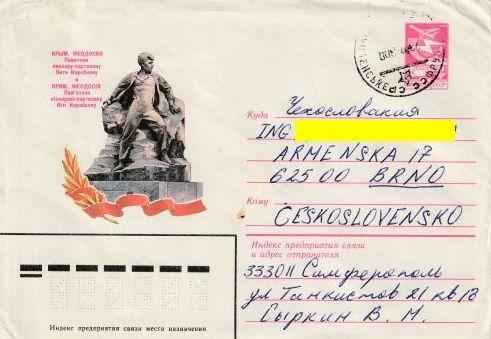 КРЫМ. ФЕОДОСИЯ
Памятник
пионеру-партизану
Вите Коробкову
КРИМ. ФЕОДОСІЯ
Пам'ятник
піонерові-партизану
Віті Коробкову
Куда
Чехословакия
ING
ARMENSKA 17
625 00 BRNO
Кому
ČESKOSLOVENSKO
Индекс предприятия связи
и адрес отправителя
333011 Симферополь
ул Танкистов 21 кв 18
Сыркин В. М.
Индекс предприятия связи места назначения